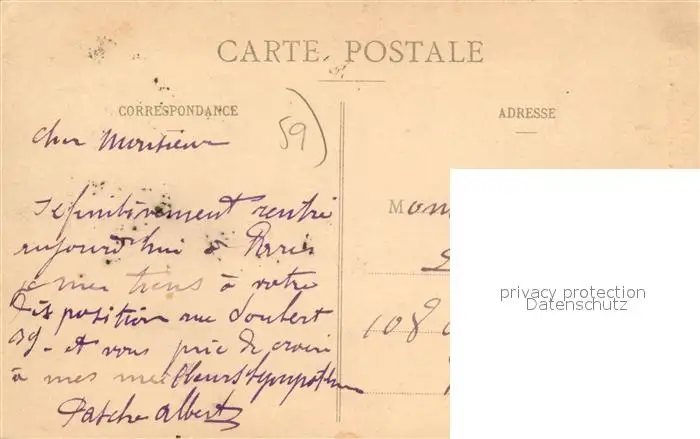 CARTE POSTALE
CORRESPONDANCE
ADRESSE
59
Cher Monsieur
Définitivement rentré
aujourd'hui à Paris
je me tiens à votre
disposition rue Joubert
39 - et vous prie de croire
à mes meilleurs sympathies
Albert
Mons
108
privacy protection
Datenschutz